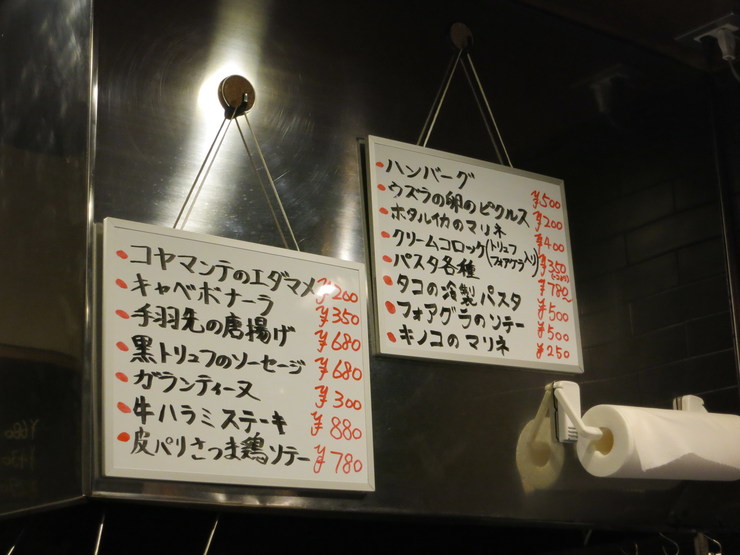 コヤマンテのエダマメ ¥200
キャベボナーラ ¥350
手羽先の唐揚げ ¥680
黒トリュフのソーセージ ¥680
ガランティーヌ ¥300
牛ハラミステーキ ¥880
皮パリさつま鶏ソテー ¥780
ハンバーグ ¥500
ウズラの卵のピクルス ¥200
ホタルイカのマリネ ¥400
クリームコロッケ(トリュフ フォアグラ入り) ¥350
パスタ各種 ¥780〜
タコの冷製パスタ ¥500
フォアグラのソテー ¥500
キノコのマリネ ¥250